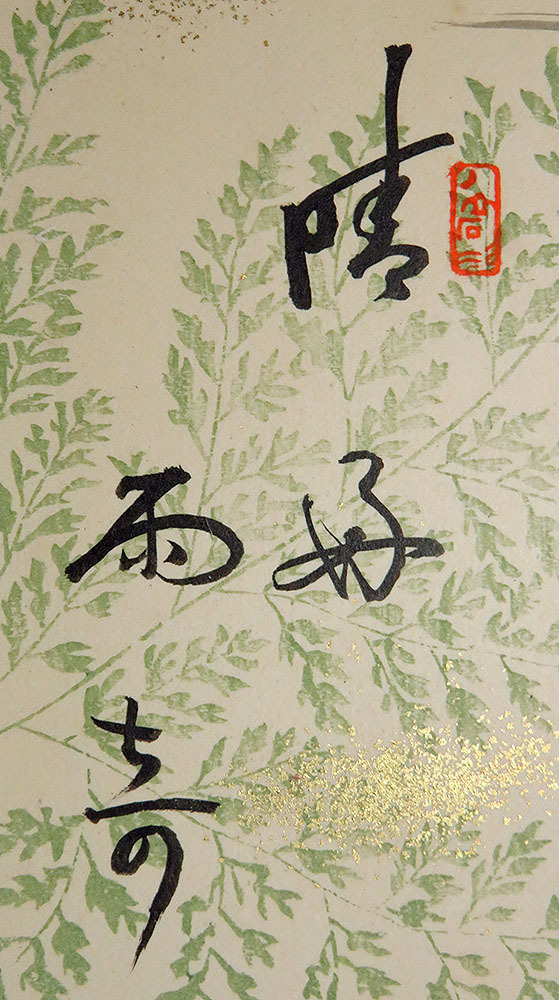 晴好
雨奇